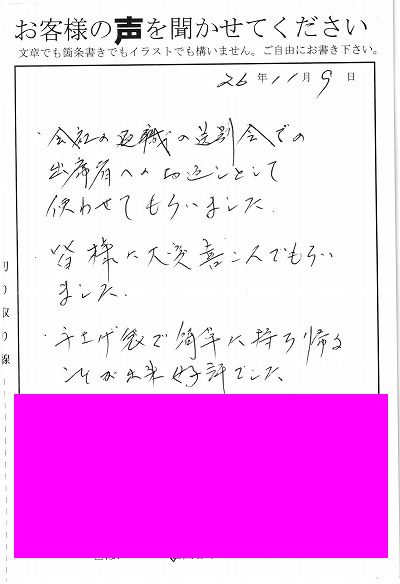 お客様の声を聞かせてください
文章でも箇条書きでもイラストでも構いません。ご自由にお書き下さい。
26年11月9日
・会社の退職の送別会での
出席者へのお返しとして
使わせてもらいました.
・皆様に大変喜こんでもらい
ました.
・手上げ袋で簡単に持ち帰る
ことが出来好評でした
り取り線